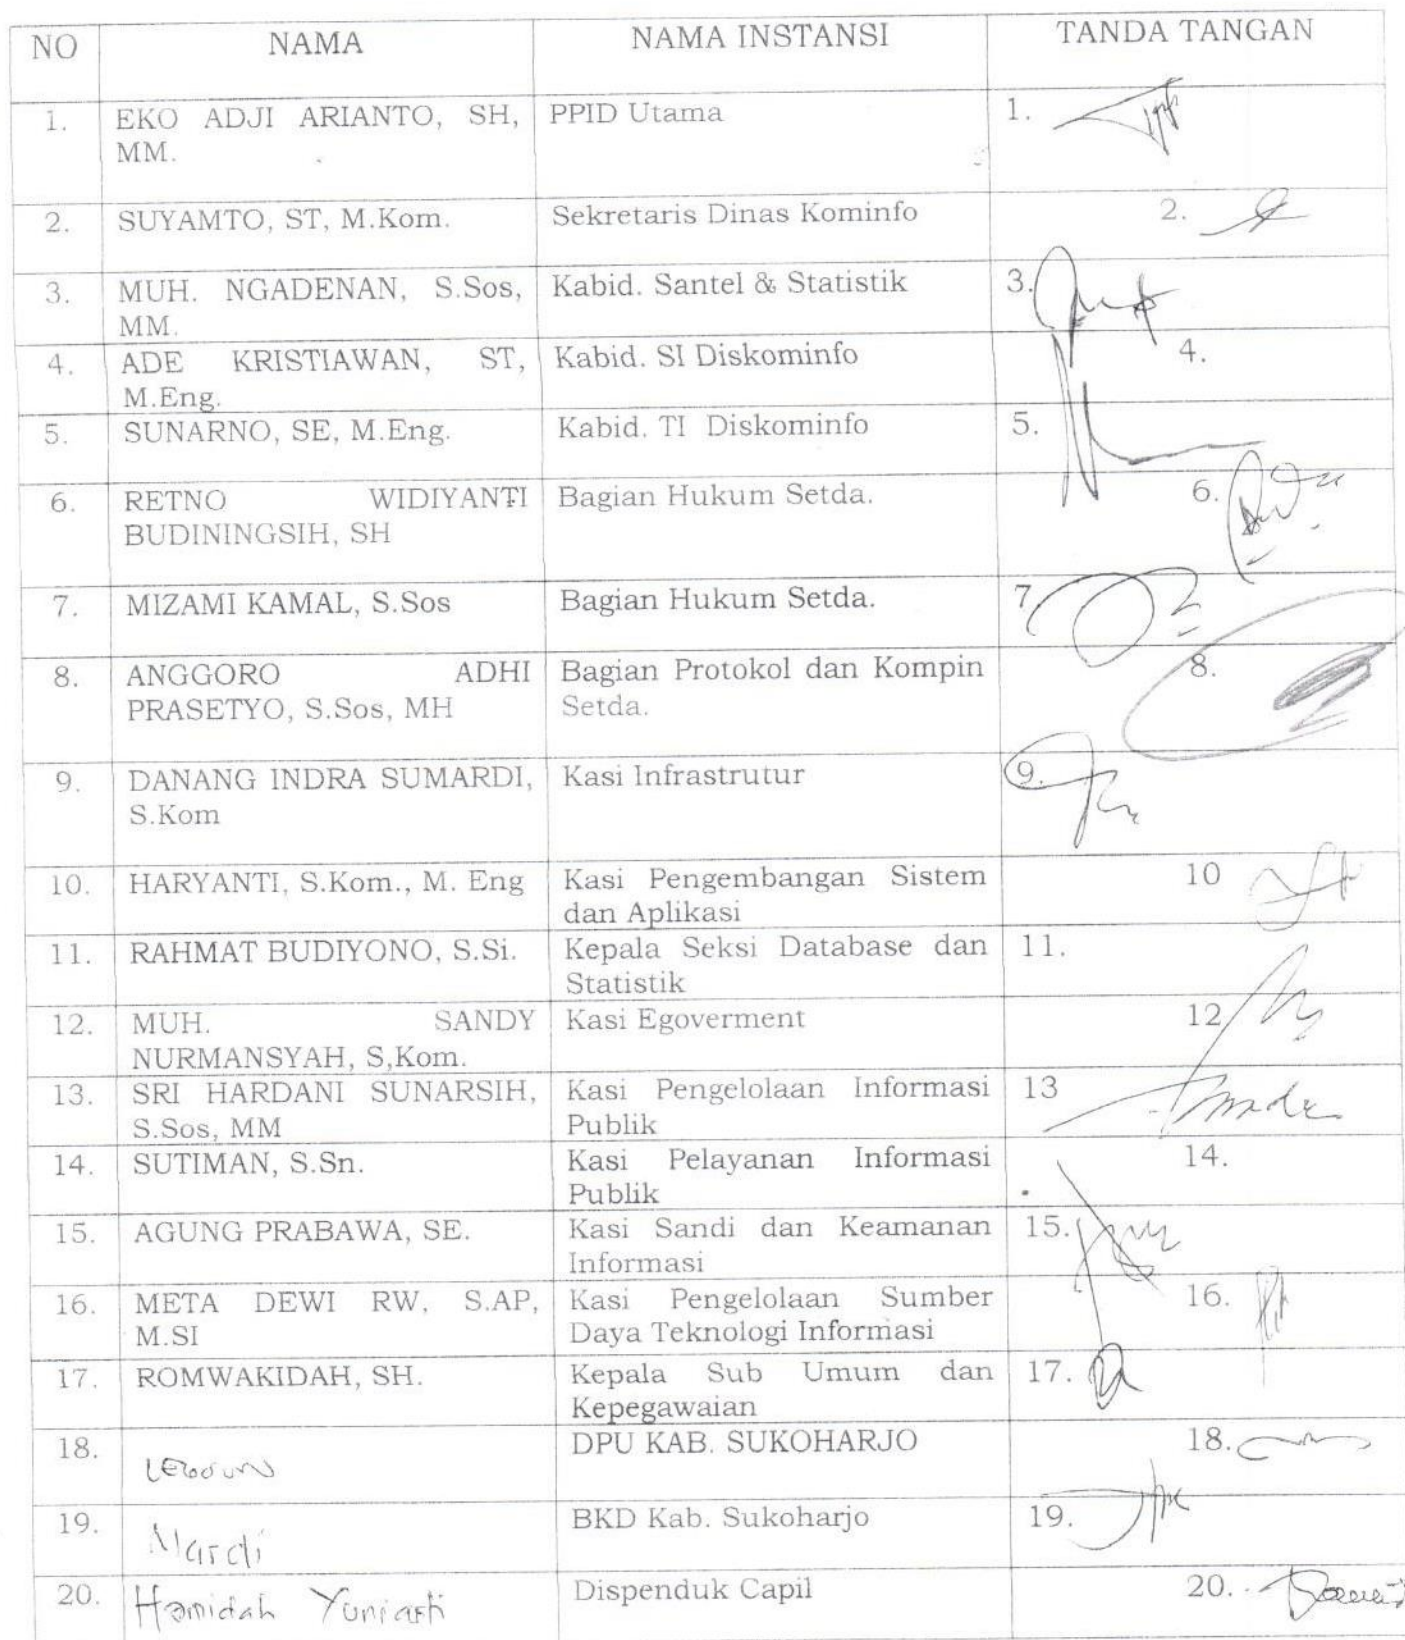 NO NAMA NAMA INSTANSI TANDA TANGAN
1. EKO ADJI ARIANTO, SH, PPID Utama 1.
MM.
2. SUYAMTO, ST, M.Kom. Sekretaris Dinas Kominfo 2.
3. MUH. NGADENAN, S.Sos, Kabid. Santel & Statistik 3.
MM.
4. ADE KRISTIAWAN, ST, Kabid. SI Diskominfo 4.
M.Eng.
5. SUNARNO, SE, M.Eng. Kabid. TI Diskominfo 5.
6. RETNO WIDIYANTI Bagian Hukum Setda. 6.
BUDININGSIH, SH
7. MIZAMI KAMAL, S.Sos Bagian Hukum Setda. 7
8. ANGGORO ADHI Bagian Protokol dan Kompin 8.
PRASETYO, S.Sos, MH Setda.
9. DANANG INDRA SUMARDI, Kasi Infrastrutur 9.
S.Kom
10. HARYANTI, S.Kom., M. Eng Kasi Pengembangan Sistem 10
dan Aplikasi
11. RAHMAT BUDIYONO, S.Si. Kepala Seksi Database dan 11.
Statistik
12. MUH. SANDY Kasi Egoverment 12
NURMANSYAH, S,Kom.
13. SRI HARDANI SUNARSIH, Kasi Pengelolaan Informasi 13
S.Sos, MM Publik
14. SUTIMAN, S.Sn. Kasi Pelayanan Informasi 14.
Publik
15. AGUNG PRABAWA, SE. Kasi Sandi dan Keamanan 15.
Informasi
16. META DEWI RW, S.AP, Kasi Pengelolaan Sumber 16.
M.SI Daya Teknologi Informasi
17. ROMWAKIDAH, SH. Kepala Sub Umum dan 17.
Kepegawaian
18. DPU KAB. SUKOHARJO 18.
19. Mardi BKD Kab. Sukoharjo 19.
20. Hamidah Yuniarti Dispenduk Capil 20.